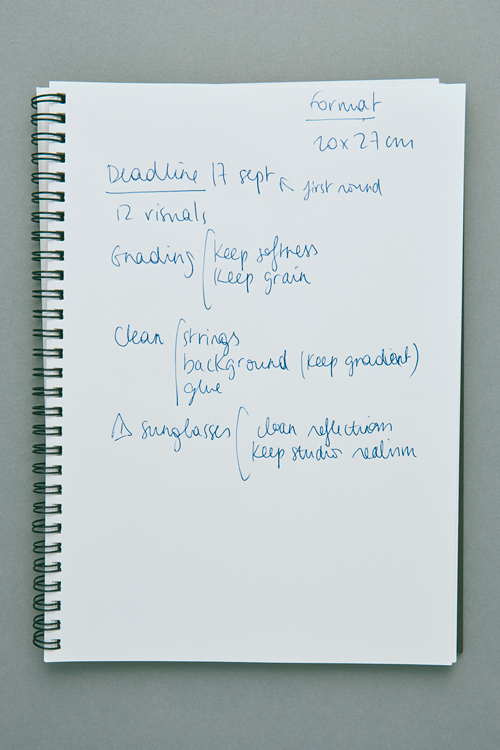 Format
20x27cm
Deadline 17 sept ↖ first round
12 visuals
Grading ( keep softness
keep grain
Clean ( strings
background (keep gradient)
glue
⚠ sunglasses ( clean reflections
keep studio realism